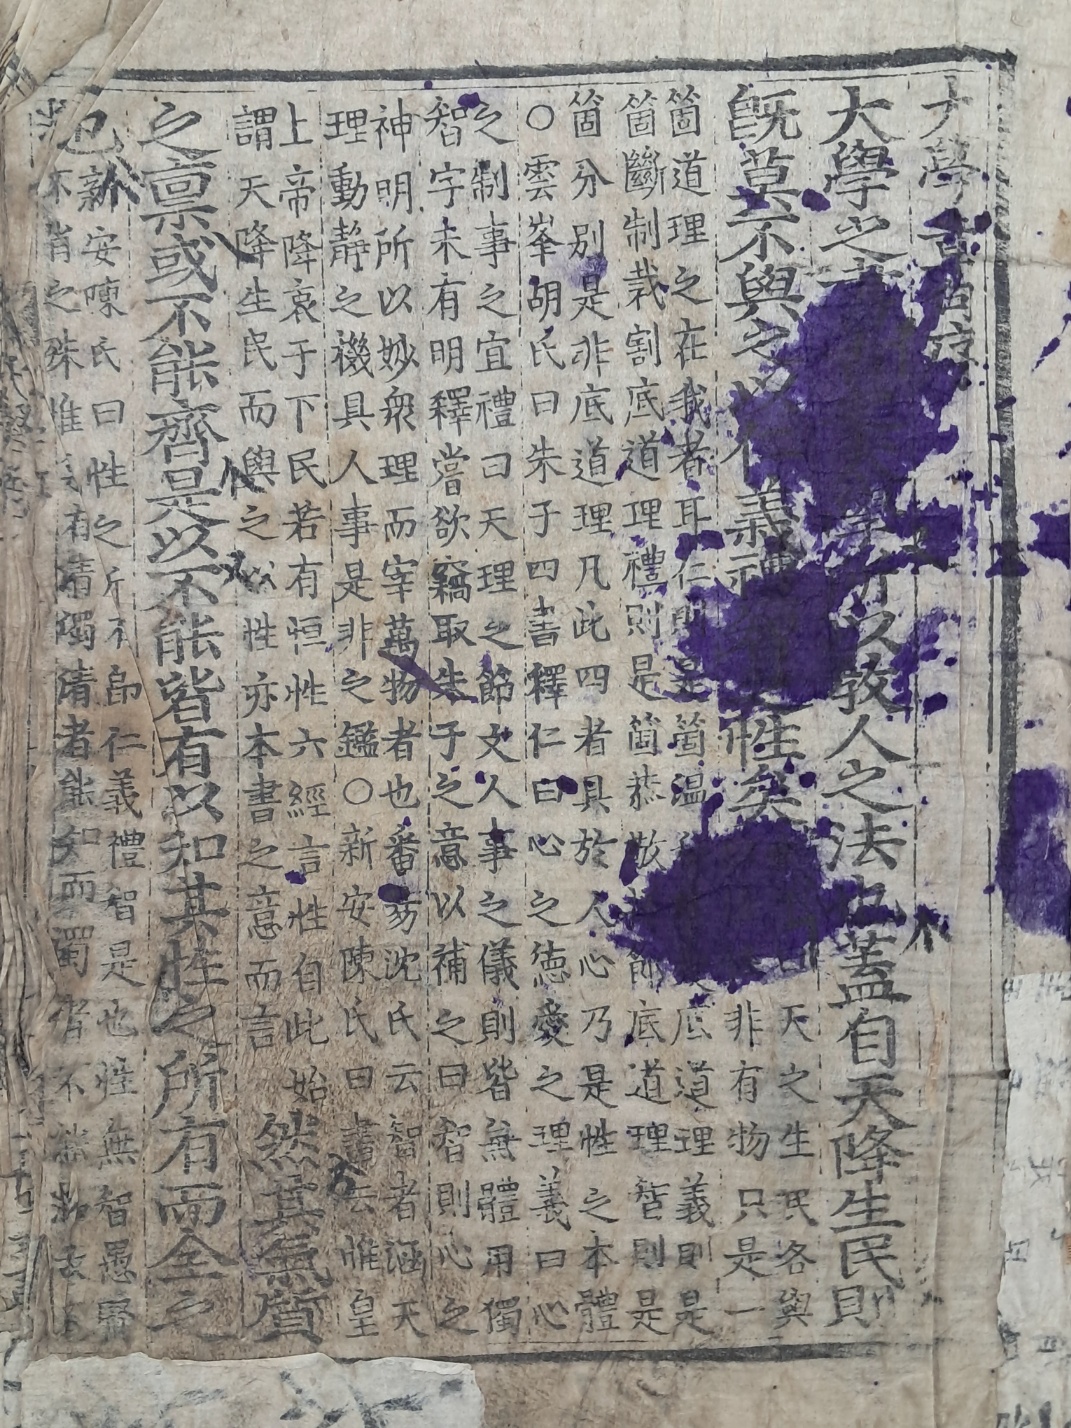 大學章句序
大學之書學所以敎人之法也蓋自天降生民則
旣莫不與之以仁義禮性矣
曰天之生民各與
非有物只是一
箇道理之在我者耳仁則是箇温底道理義則是
箇斷制裁割底道理禮則是箇恭敬節底道理智則是
箇分別是非底道理凡此四者具於人心乃是性之本體
○雲峯胡氏曰朱子四書釋仁曰心之德愛之理義曰心
之制事之宜禮曰天理之節文人事之儀則皆無體用獨
智字未有明釋嘗欲竊取朱子之意以補之曰智則心之
神明所以妙衆理而宰萬物者也番昜沈氏云智者涵天
理動靜之機具人事是非之鑑○新安陳氏曰書云惟皇
上帝降衷于下民若有恒性六經言性自此始
謂天降生民而與之以性亦本書之意而言
然其氣質
之禀或不能齊是以不能皆有以知其性之所有而全之
也
新安陳氏曰性之所有卽仁義禮智是也性無智愚賢
不肖之殊惟氣有淸濁淸者能知而濁者不能知故